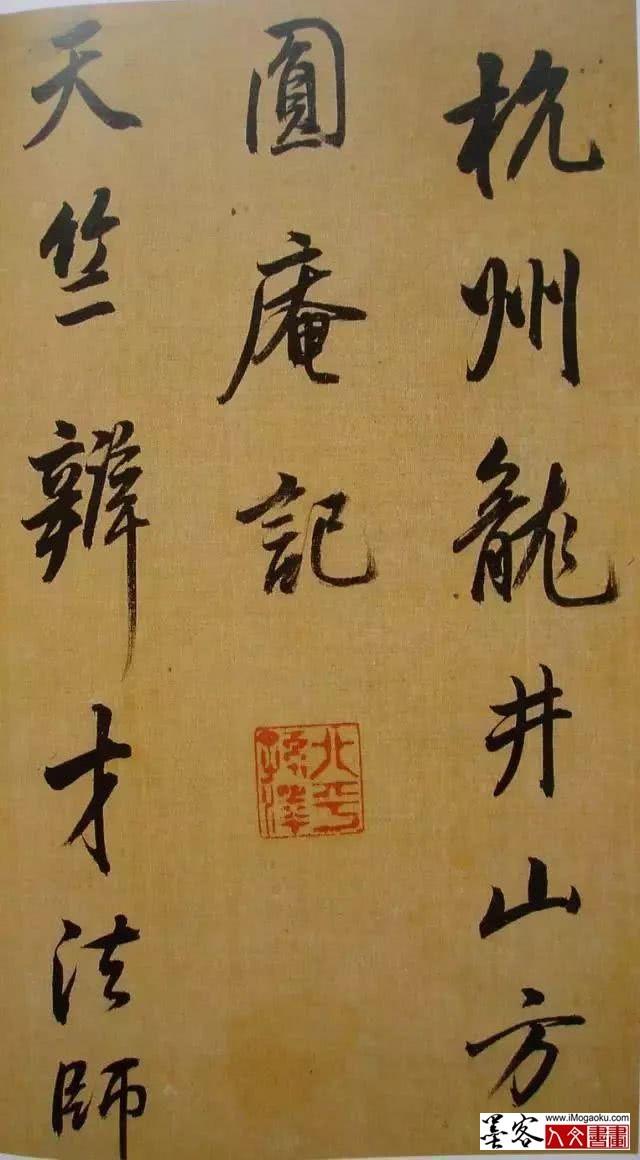 杭州龍井山方
圓庵記
天竺辯才法師
北平
孫澤
www.iMogaoku.com
墨客
人文書畫